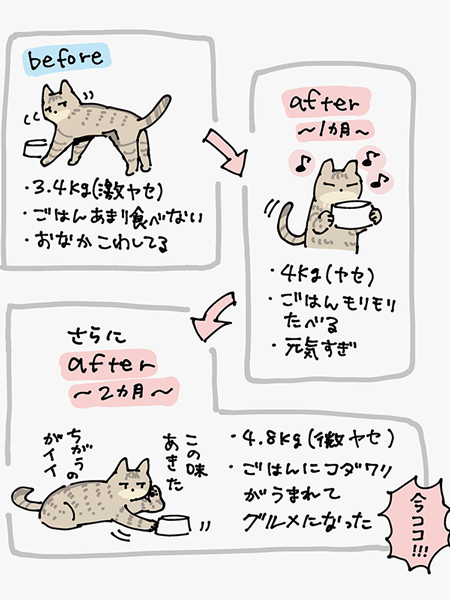 before
・3.4kg(激ヤセ)
・ごはんあまり食べない
・おなかこわしてる
after
〜1カ月〜
・4kg(ヤセ)
・ごはんモリモリ
たべる
・元気すぎ
さらに
after
〜2カ月〜
この味
あきた
ちがうの
がイイ
・4.8kg(微ヤセ)
・ごはんにコダワリ
がうまれて
グルメになった
今ココ!!!